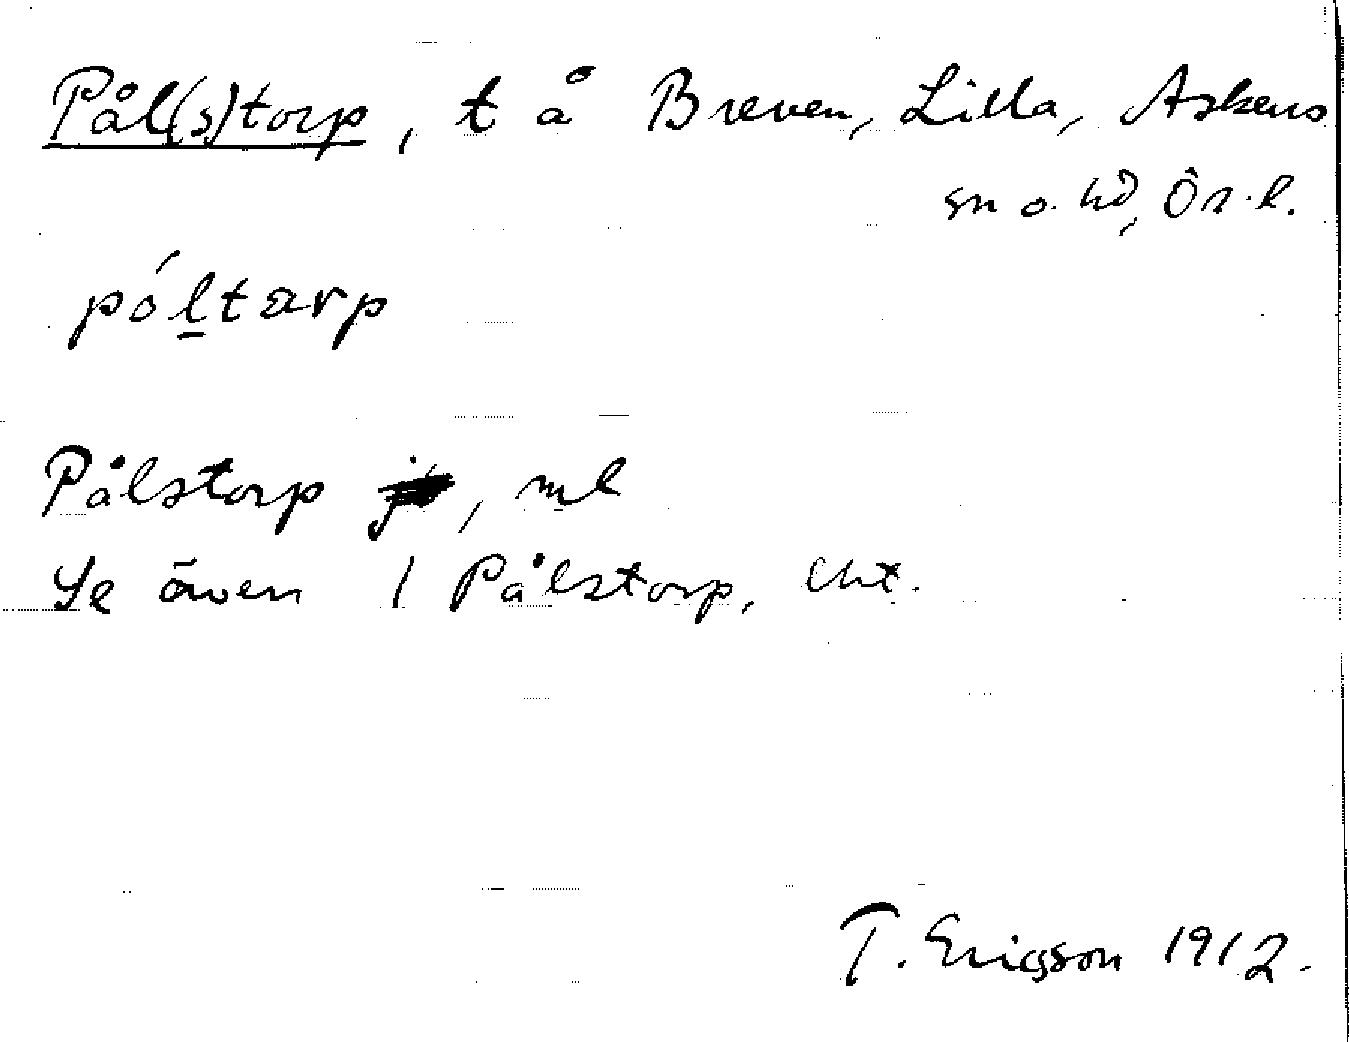 Pål(s)torp, t å Breven, Lilla, Askers
sn o. hd, Ör. l.
póltarp
Pålstorp, ml
Se även 1 Pålstorp,
T. Ericsson 1912.